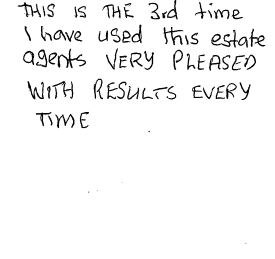 THIS IS THE 3rd time
I have used this estate
agents VERY PLEASED
WITH RESULTS EVERY
TIME